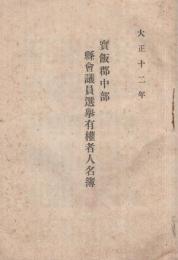 大正十二年
寳飯郡中部
縣會議員選擧有權者人名簿